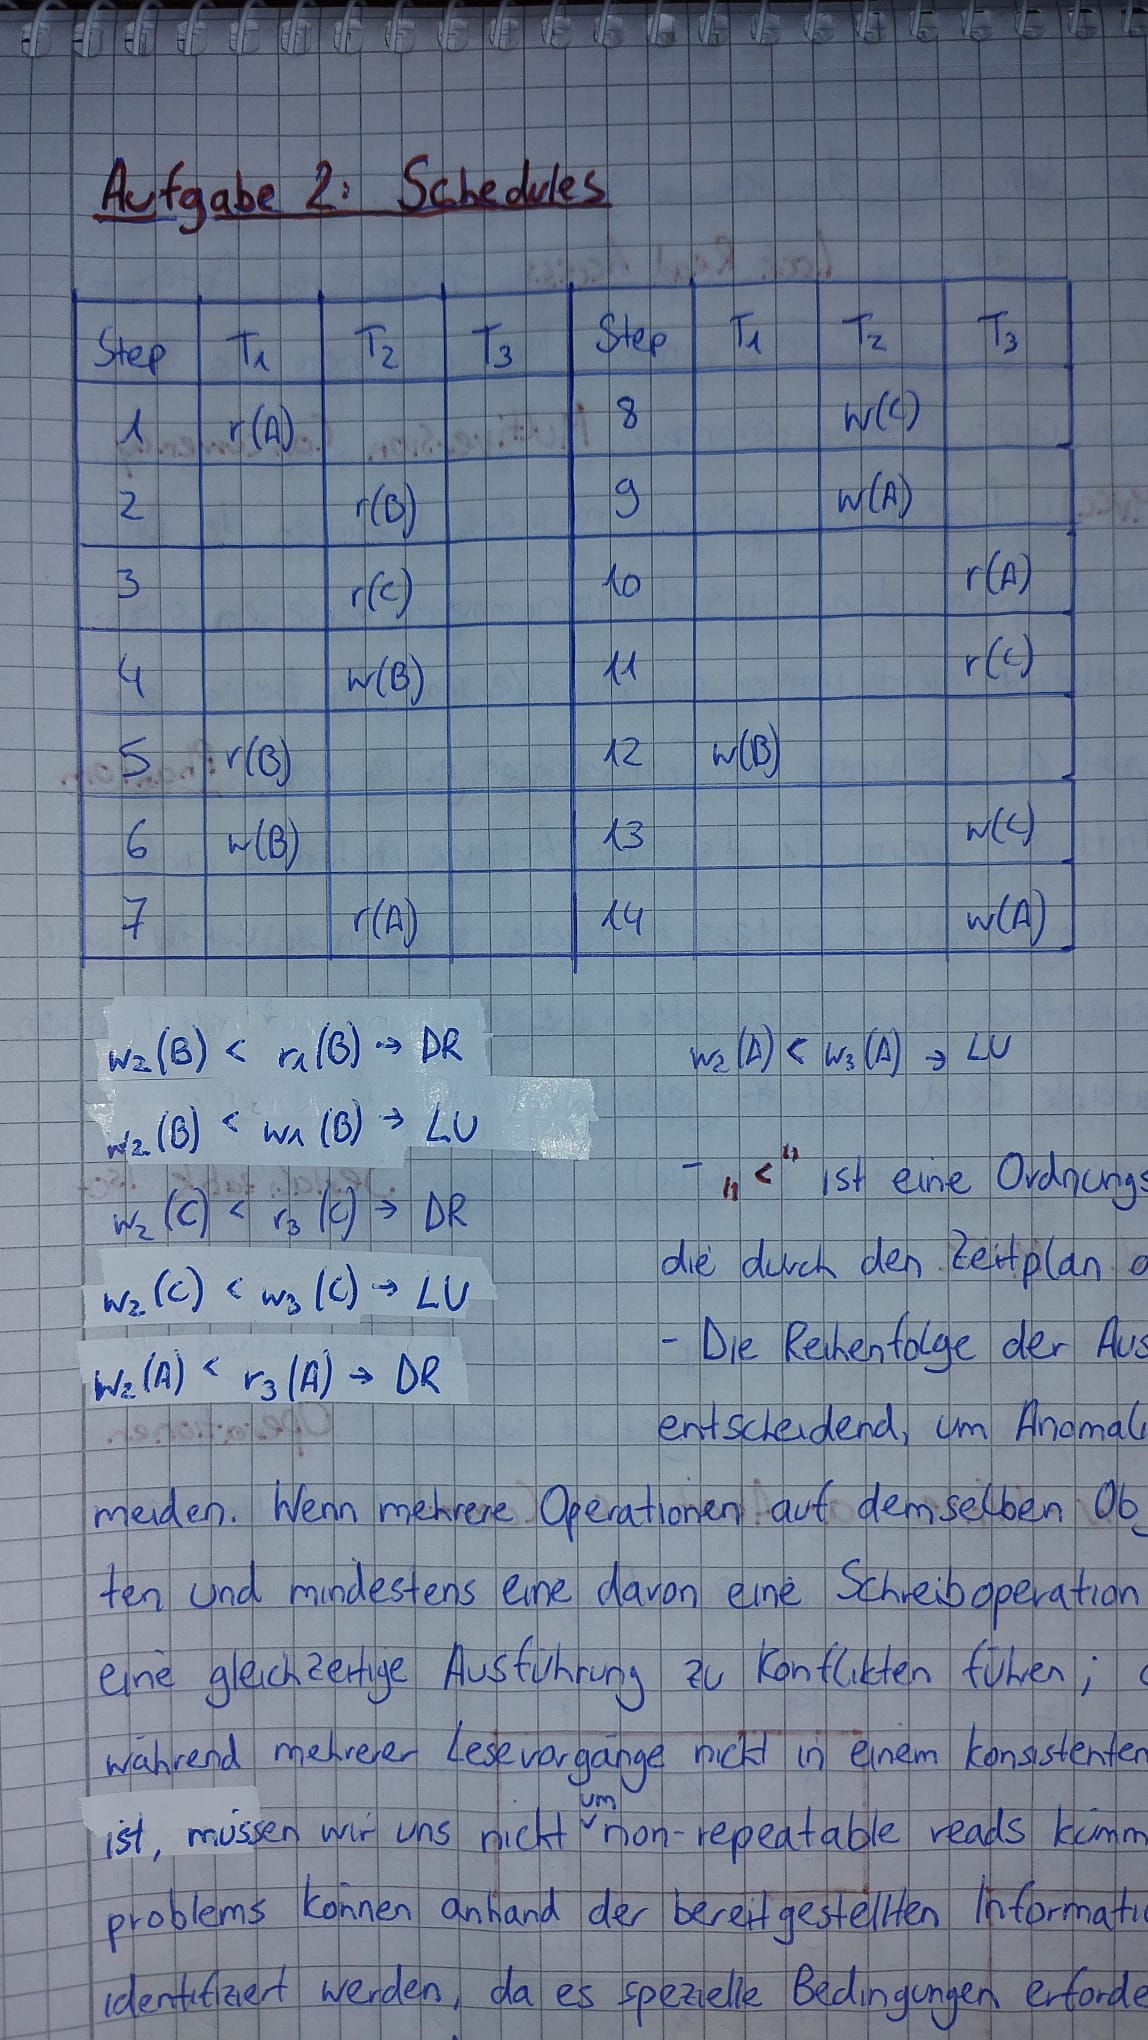 Aufgabe 2: Schedules
Step T1 T2 T3 Step T1 T2 T3
1 r(A) 8 w(C)
2 r(B) 9 w(A)
3 r(C) 10 r(A)
4 w(B) 11 r(C)
5 r(B) 12 w(B)
6 w(B) 13 w(C)
7 r(A) 14 w(A)
w2(B) < r1(B) → DR
w2(A) < w3(A) → LU
w2(B) < w1(B) → LU
w2(C) < r3(C) → DR
w2(C) < w3(C) → LU
w2(A) < r3(A) → DR
- „<" ist eine Ordnungs
die durch den Zeitplan
- Die Reihenfolge der Aus
entscheidend, um Anomal
meiden. Wenn mehrere Operationen auf demselben Ob
ten und mindestens eine davon eine Schreiboperation
eine gleichzeitige Ausführung zu Konflikten führen;
während mehrerer Lesevorgänge nicht in einem konsistenten
ist, müssen wir uns nicht um non-repeatable reads kümm
problems können anhand der bereitgestellten Informati
identifiziert werden, da es spezielle Bedingungen erforde